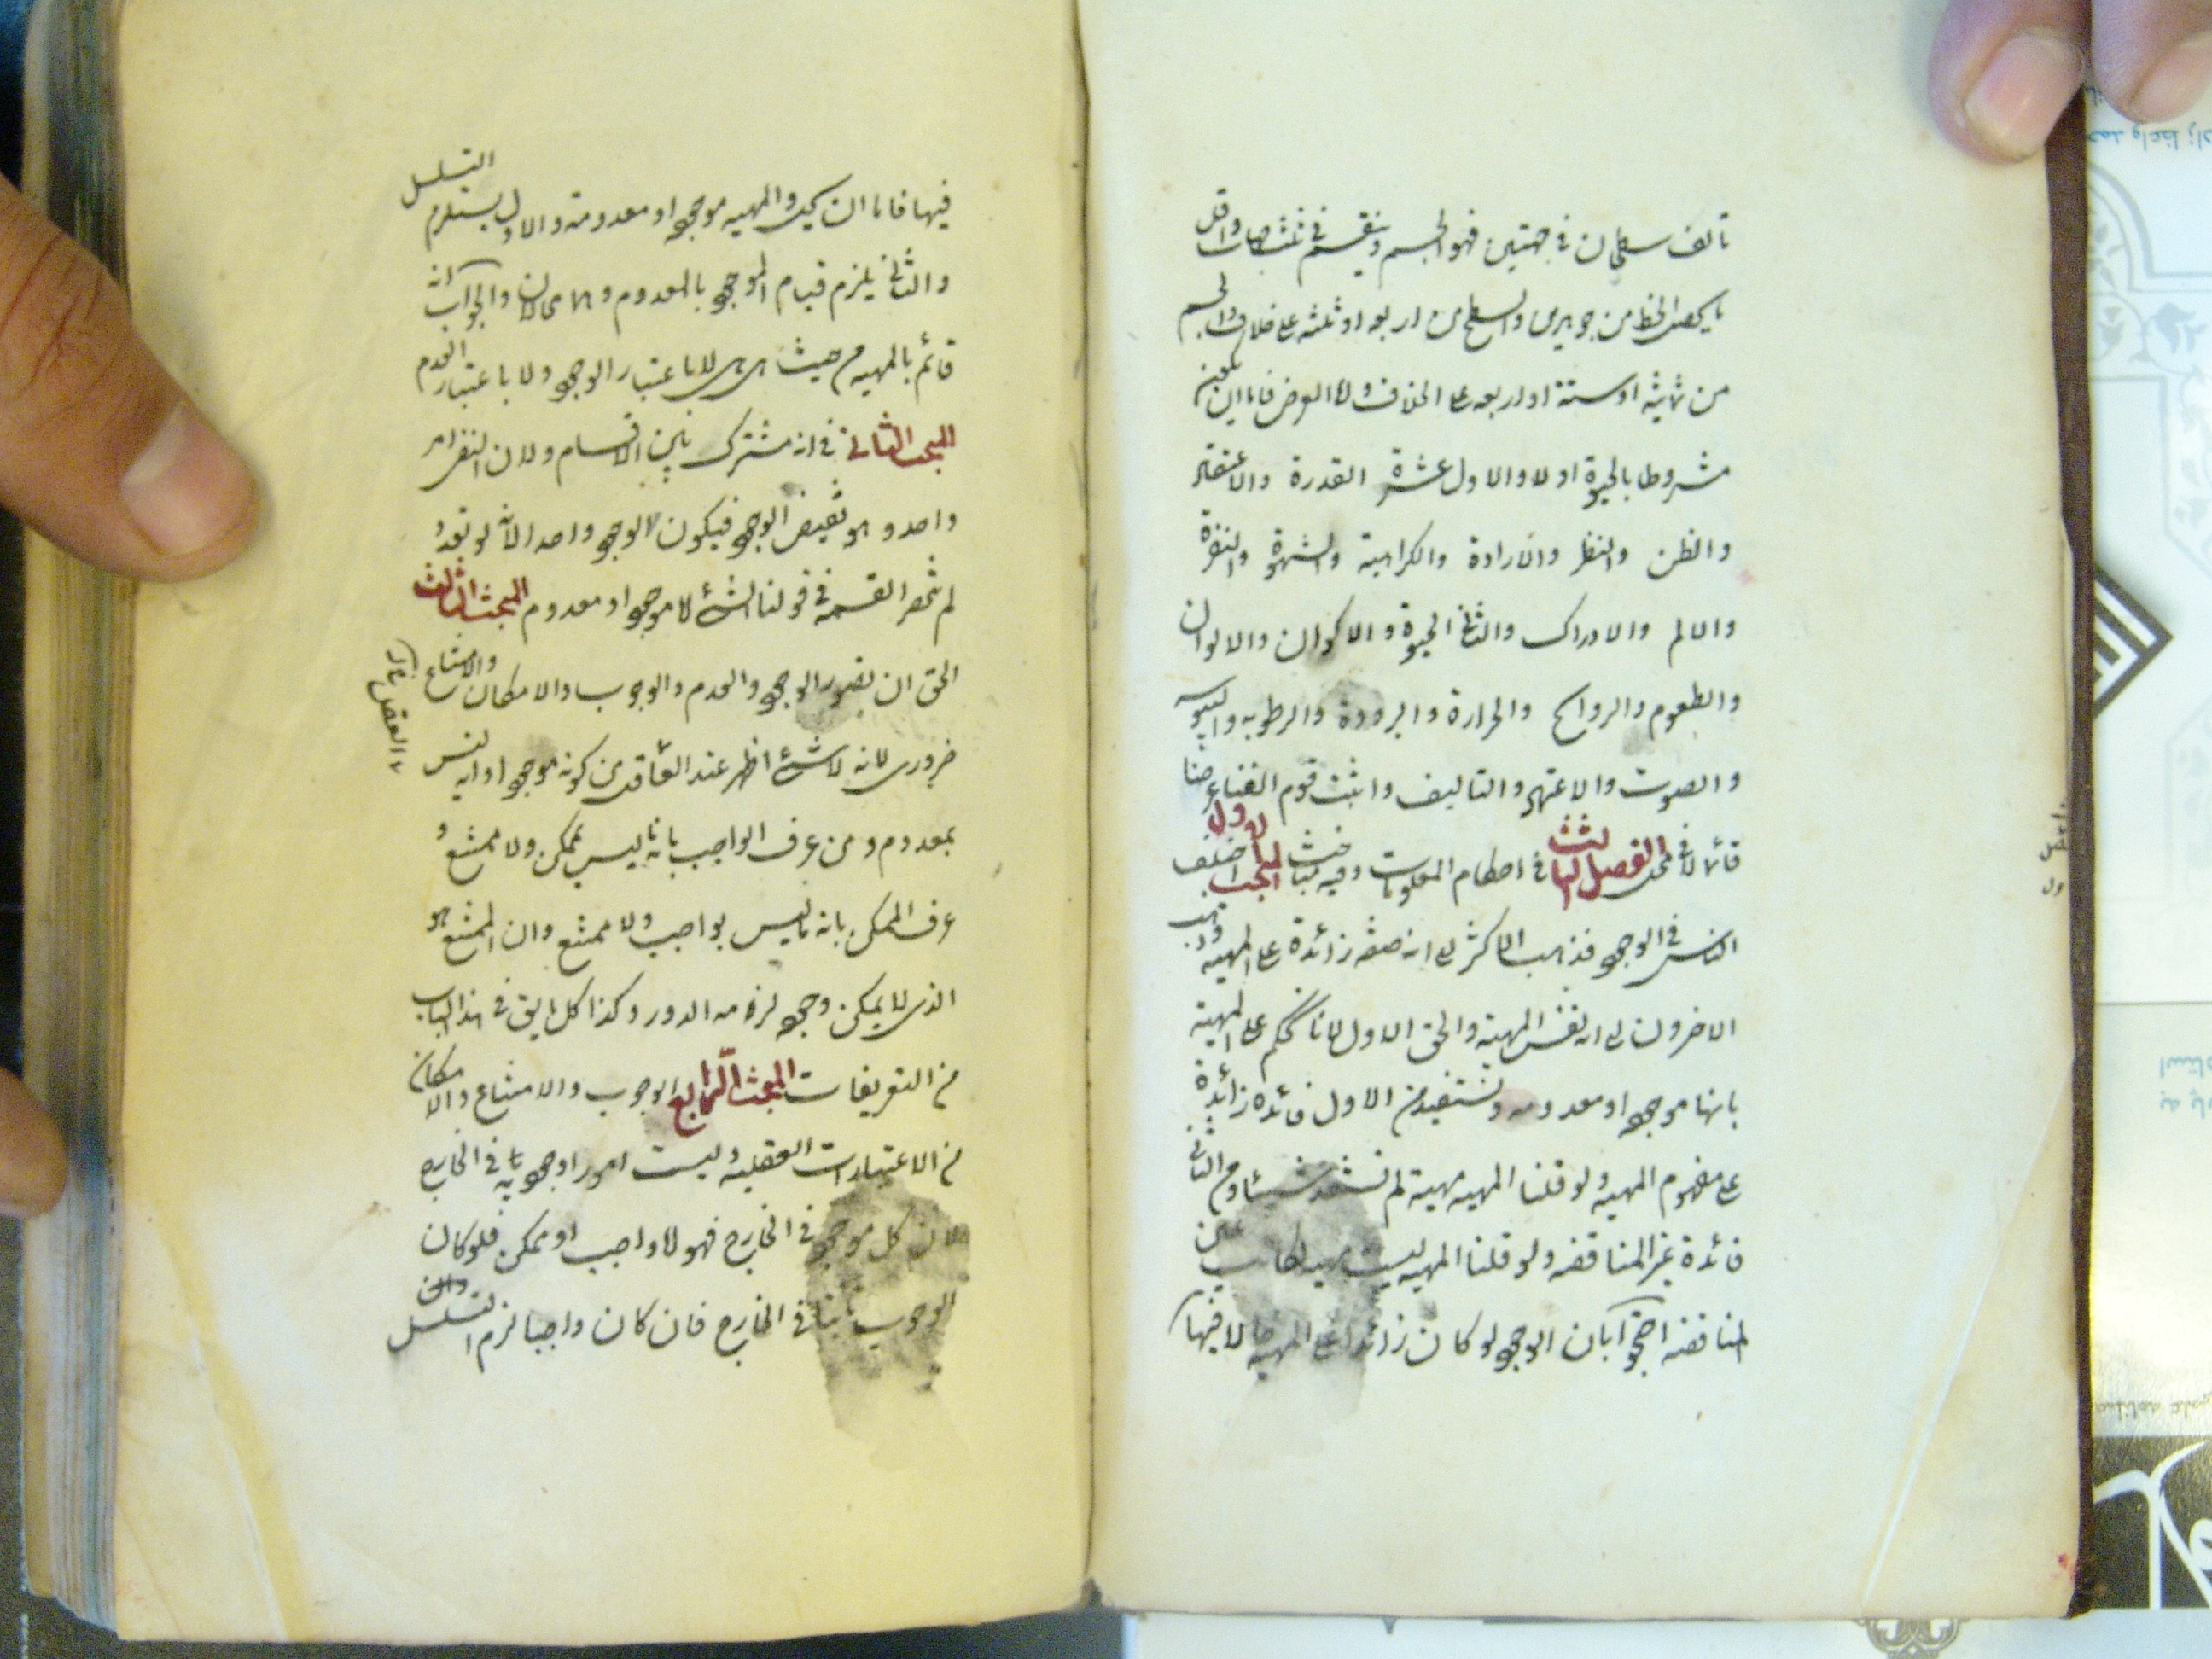 تألف سطحان في جهتين فهو الجسم وينقسم في ثلث جهات واقل
ما يحصل الخط من جوهرين والسطح من اربعه او ثلثه على خلاف والجسم
من ثمانية او ستة او اربعه على الخلاف واما العرض فاما ان يكون
مشروطا بالحيوة او لا والاول عشرة القدرة والاعتقاد
والظن والنظر والارادة والكراهية والشهوة والنفرة
والالم والادراك والثاني الحيوة والاكوان والالوان
والطعوم والروايح والحرارة والبرودة والرطوبه واليبوسه
والصوت والاعتماد والتاليف واثبت قوم الفناء عرضا
قائما لا في محل الفصل الثالث في احكام المعلومات وفيه مباحث البحث الاول اختلف
الناس في الوجود فذهب الاكثر الى انه صفه زائدة على المهيه وذهب
الاخرون الى انه نفس المهية والحق الاول لانا نحكم على المهية
بانها موجوده او معدومه ونستفيد من الاول فائده زائدة
على مفهوم المهيه ولو قلنا المهيه مهية لم نستفد شيئا ومن الثاني
فائدة غير المناقضه ولو قلنا المهيه ليست مهيه لكانت عين
المناقضه احتجوا بان الوجود لو كان زائدا على المهيه حالا فيها
فيها فاما ان يكون المهيه موجوده او معدومة والاول يستلزم التسلسل
والثاني يلزم قيام الموجود بالمعدوم وهما محالان والجواب انه
قائم بالمهيه من حيث هي هي لا باعتبار الوجود ولا باعتبار العدم
البحث الثاني في انه مشترك بين الاقسام ولان النفي امر
واحد وهو نقيض الوجود فيكون الوجود واحدا لانه لو تعدد
لم تنحصر القسمه في قولنا الشئ اما موجود او معدوم البحث الثالث
الحق ان تصور الوجود والعدم والوجوب والامكان والامتناع
ضروري لانه لا شئ اظهر عند العاقل من كونه موجودا او انه ليس
بمعدوم ومن عرف الواجب بانه ما ليس بممكن ولا ممتنع و
عرف الممكن بانه ما ليس بواجب ولا ممتنع وان الممتنع هو
الذي لا يمكن وجوده لزمه الدور وكذا كل ما يق في هذا الباب
من التعريفات البحث الرابع الوجوب والامتناع والامكان
من الاعتبارات العقليه وليست امورا وجودية في الخارج
لان كل موجود في الخارج فهو اما واجب او ممكن فلو كان
الوجوب ثابتا في الخارج فان كان واجبا لزم التسلسل وان